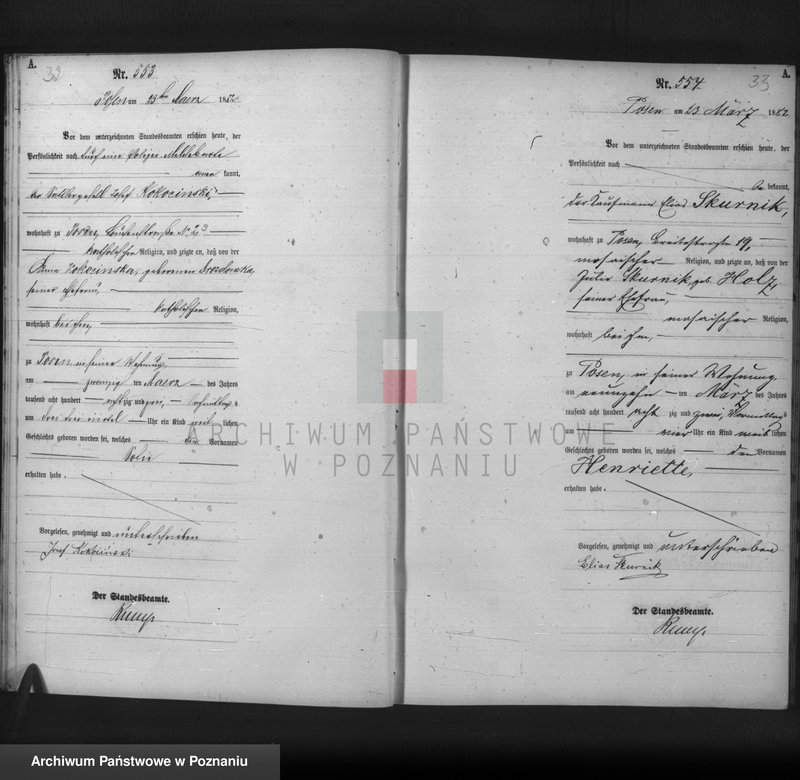 A.
32
Nr. 553
Posen am 23ten Maerz 1882
Vor dem unterzeichneten Standesbeamten erschien heute, der
Persönlichkeit nach
kannt,
Josef Kokocinski,
wohnhaft zu Posen,
katholischer Religion, und zeigte an, daß von der
Anna Kokocinska, geborenen
seiner Ehefrau,
katholischer Religion,
wohnhaft bei ihm,
zu Posen in seiner Wohnung
am zwanzig ten Maerz des Jahres
tausend acht hundert achtzig und zwei, Vormittags
um drei drei viertel Uhr ein Kind weib lichen
Geschlechts geboren worden sei, welches den Vornamen
erhalten habe.
Vorgelesen, genehmigt und unterschrieben
Josef Kokocinski
Der Standesbeamte.
A.
33
Nr. 554.
Posen am 23 März 1882
Vor dem unterzeichneten Standesbeamten erschien heute, der
Persönlichkeit nach
be kannt,
der Kaufmann Elias Skurnik,
wohnhaft zu Posen, Breitestraße 19,
mosaischer Religion, und zeigte an, daß von der
Julie Skurnik, geb. Holz,
seiner Ehefrau,
mosaischer Religion,
wohnhaft bei ihm,
zu Posen, in seiner Wohnung,
am neunzehn ten März des Jahres
tausend acht hundert acht zig und zwei, Vormittags
um vier Uhr ein Kind weib lichen
Geschlechts geboren worden sei, welches den Vornamen
Henriette,
erhalten habe.
Vorgelesen, genehmigt und unterschrieben
Elias Skurnik
Der Standesbeamte.
ARCHIWUM PAŃSTWOWE
W POZNANIU
Archiwum Państwowe w Poznaniu